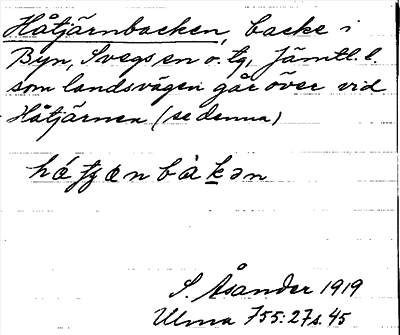 Håtjärnbacken, backe i
Byn, Svegs sn o. tg, Jämtl. l.
som landsvägen går över vid
Håtjärnen (se denna)
S. Åsander 1919
Ulma 755:27 s. 45